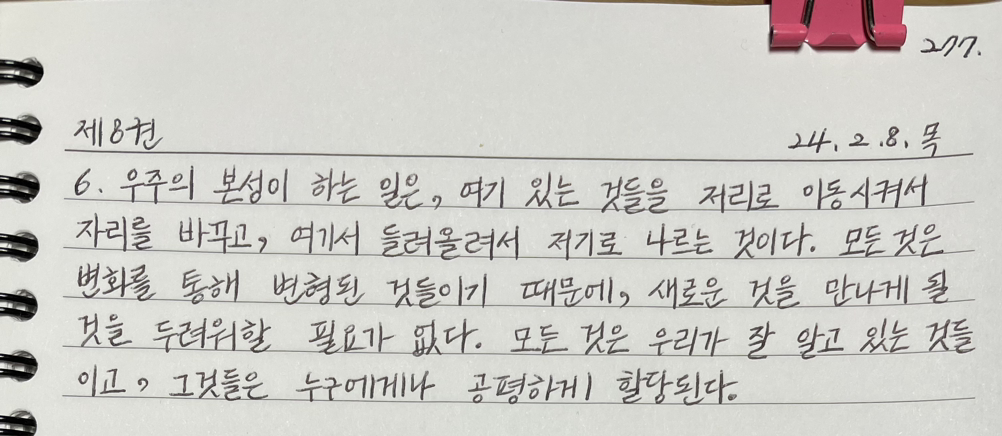 277.
제8권 24.2.8.목
6. 우주의 본성이 하는 일은, 여기 있는 것들을 저리로 이동시켜서
자리를 바꾸고, 여기서 들려올려서 저기로 나르는 것이다. 모든것은
변화를 통해 변형된 것들이기 때문에, 새로운 것을 만나게 될
것을 두려워할 필요가 없다. 모든 것은 우리가 잘 알고 있는 것들
이고, 그것들은 누구에게나 공평하게 할당된다.